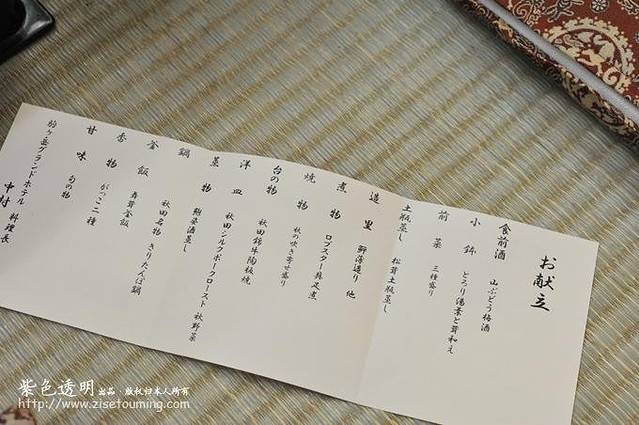 お献立
食前酒 山ぶどう梅酒
小鉢 とろり湯葉と茸和え
前菜 三種盛り
土瓶蒸し 松茸土瓶蒸し
造里 鮮薄造り 他
煮物 ロブスター具足煮
焼物 秋の吹き寄せ盛り
台の物 秋田錦牛陶板焼
洋皿 秋田シルクポークロースト 秋野菜
蒸物 鮑菜酒蒸し
鍋 秋田名物 きりたんぽ鍋
釜飯 舞茸釜飯
香物 がっこ二種
甘味 旬の物
駒ヶ岳グランドホテル 料理長
中村
紫色透明 出品·版权归本人所有
http://www.zisetouming.com/